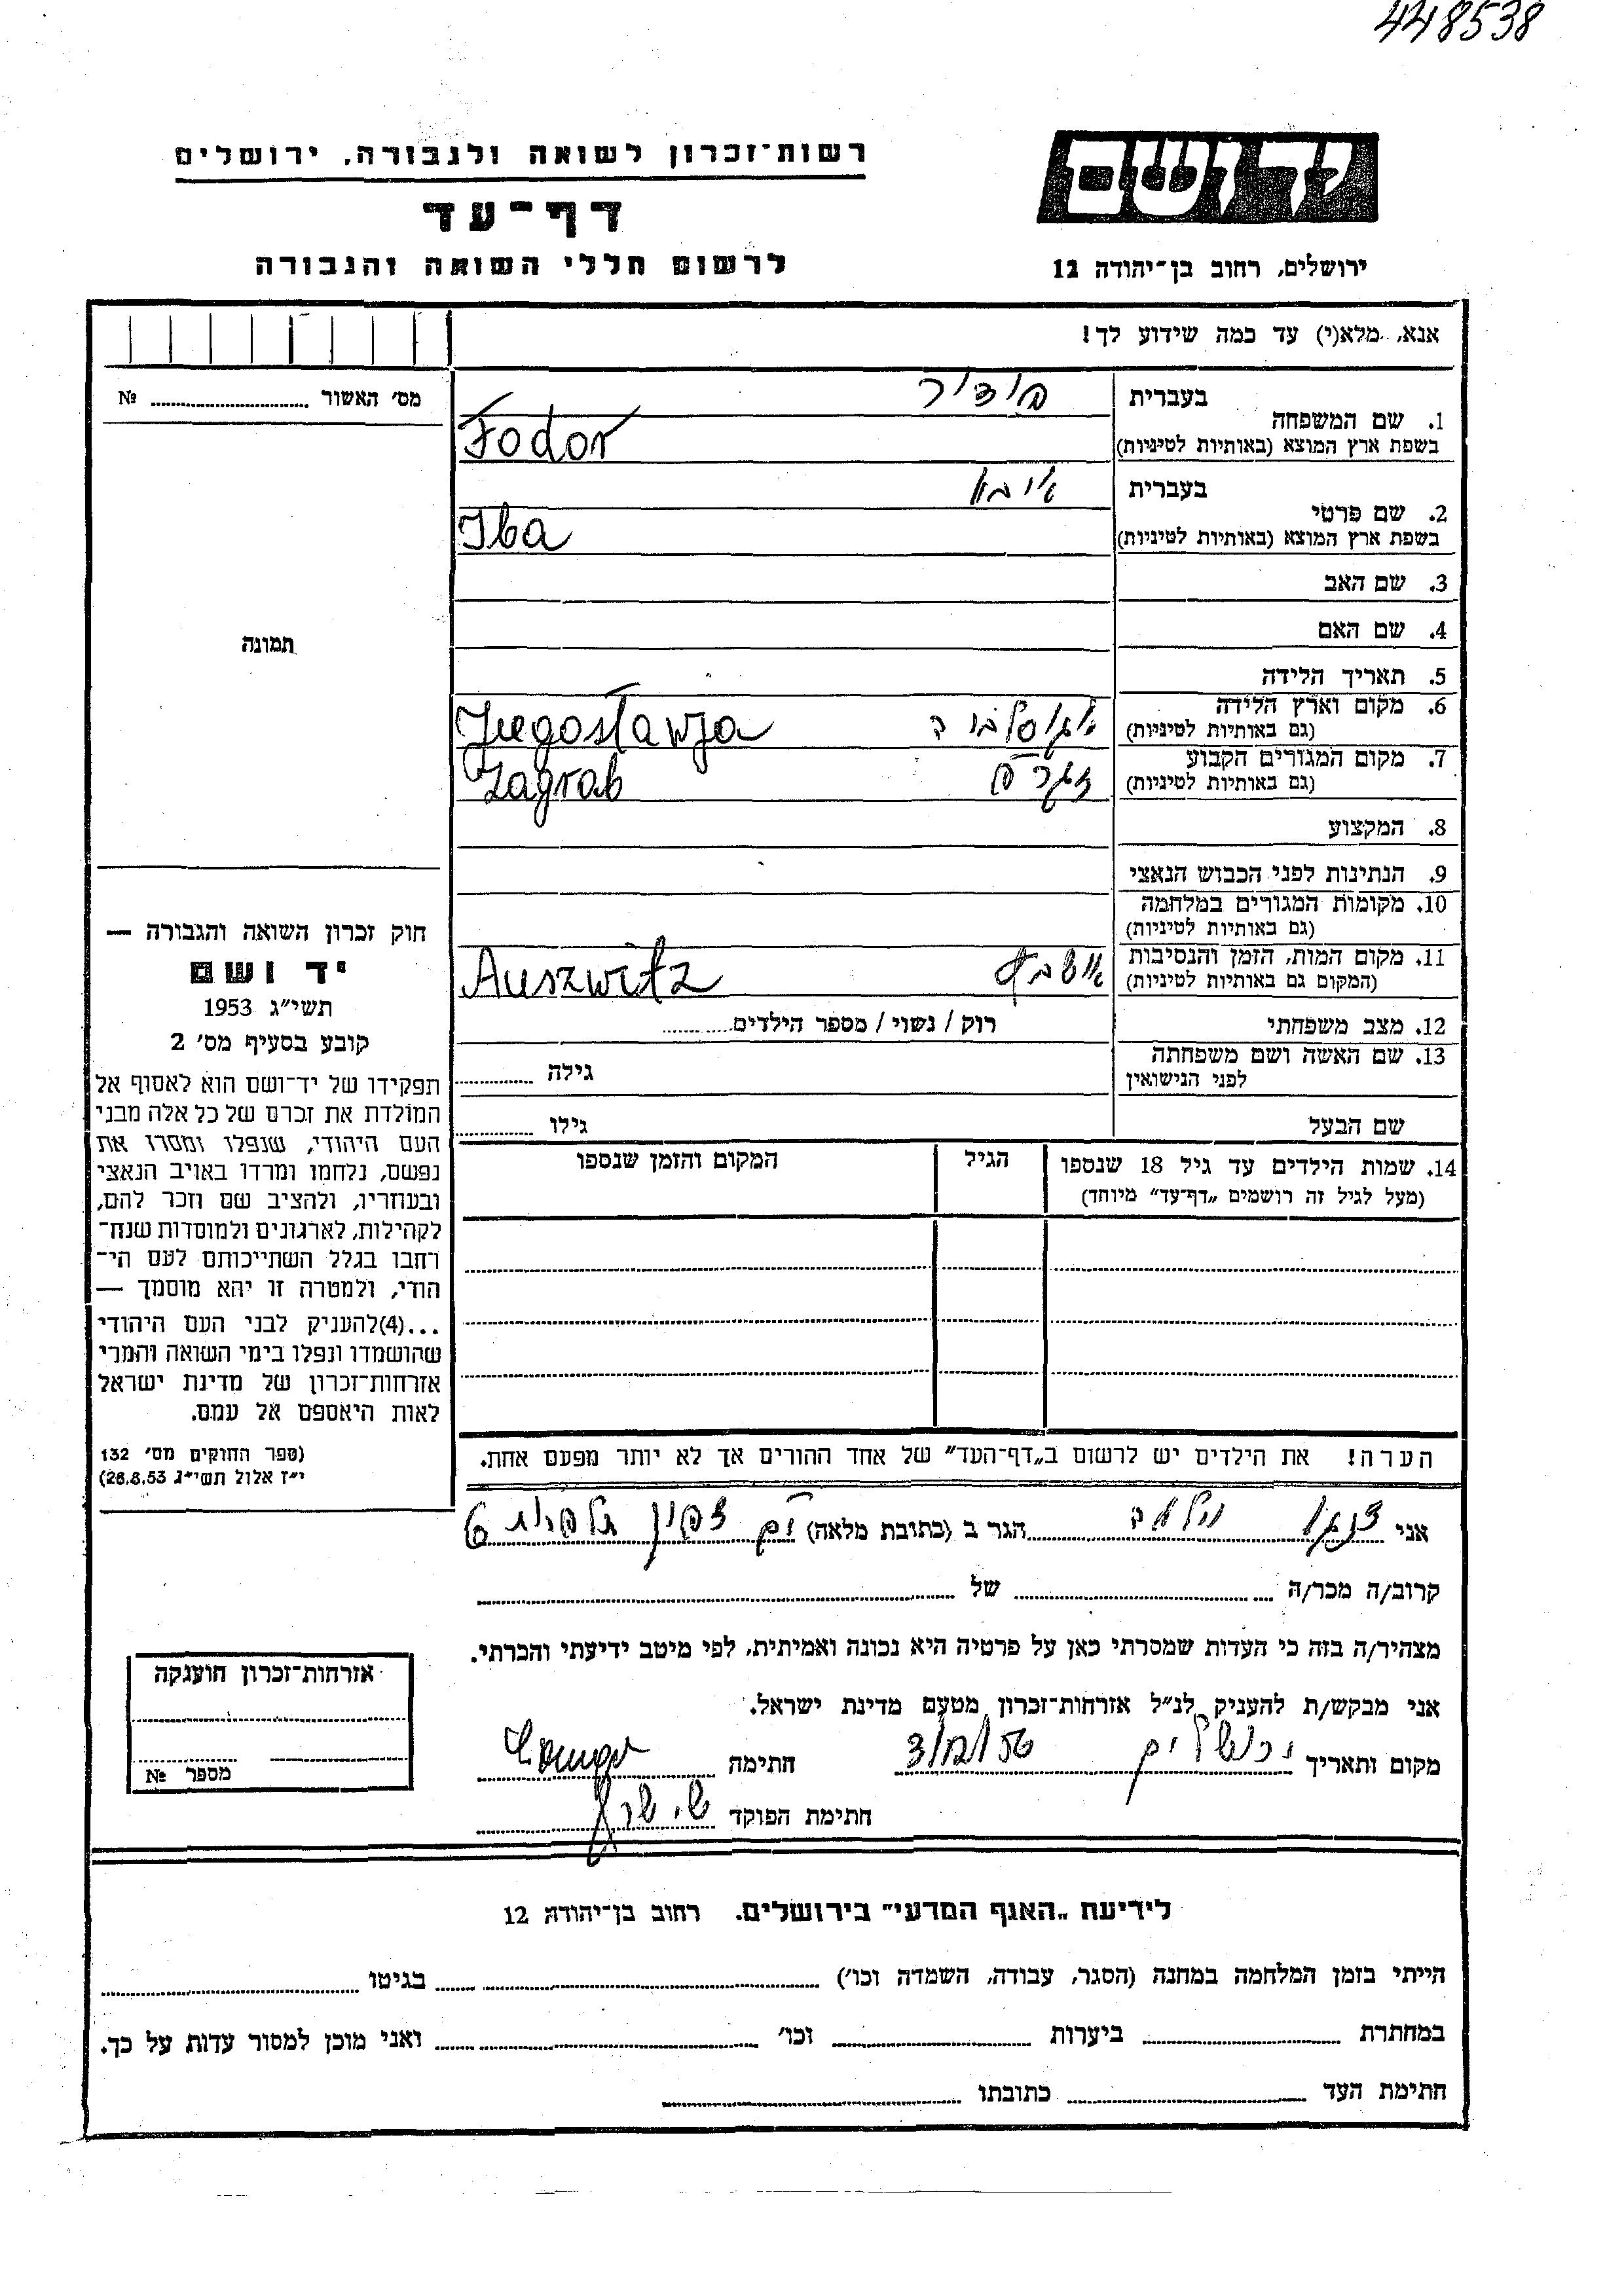 448538
רשות־זכרון לשואה ולגבורה, ירושלים
דף־עד
לרשום חללי השואה והגבורה
יד ושם
ירושלים, רחוב בן־יהודה 12
אנא, מלא(י) עד כמה שידוע לך!
מס׳ האשור № 
תמונה
1. שם המשפחה
בעברית
בשפת ארץ המוצא (באותיות לטיניות)
Fodor
2. שם פרטי
בעברית
איבא
בשפת ארץ המוצא (באותיות לטיניות)
Iba
3. שם האב
4. שם האם
5. תאריך הלידה
6. מקום וארץ הלידה
(גם באותיות לטיניות)
Jugoslawja
7. מקום המגורים הקבוע
(גם באותיות לטיניות)
Zagrab
8. המקצוע
9. הנתינות לפני הכבוש הנאצי
10. מקומות המגורים במלחמה
(גם באותיות לטיניות)
11. מקום המות, הזמן והנסיבות
(המקום גם באותיות לטיניות)
Auszwitz
12. מצב משפחתי רוק / נשוי / מספר הילדים
13. שם האשה ושם משפחתה
לפני הנישואין
גילה
שם הבעל גילו
14. שמות הילדים עד גיל 18 שנספו
(מעל לגיל זה רושמים „דף־עד״ מיוחד)
הגיל
המקום והזמן שנספו
הערה! את הילדים יש לרשום ב„דף־העד״ של אחד ההורים אך לא יותר מפעם אחת.
חוק זכרון השואה והגבורה —
יד ושם
תשי״ג 1953
קובע בסעיף מס׳ 2
תפקידו של יד־ושם הוא לאסוף אל
המולדת את זכרם של כל אלה מבני
העם היהודי, שנפלו ומסרו את
נפשם, נלחמו ומרדו באויב הנאצי
ובעוזריו, ולהציב שם וזכר להם,
לקהילות, לארגונים ולמוסדות שנח־
רבו בגלל השתייכותם לעם הי־
הודי, ולמטרה זו יהא מוסמך —
...(4)להעניק לבני העם היהודי
שהושמדו ונפלו בימי השואה והמרי
אזרחות־זכרון של מדינת ישראל
לאות היאספם אל עמם.
(ספר החוקים מס׳ 132
י״ז אלול תשי״ג 28.8.53)
אני הגר ב (כתובת מלאה) 6
קרוב/ה מכר/ה של
מצהיר/ה בזה כי העדות שמסרתי כאן על פרטיה היא נכונה ואמיתית, לפי מיטב ידיעתי והכרתי.
אני מבקש/ת להעניק לנ״ל אזרחות־זכרון מטעם מדינת ישראל.
מקום ותאריך ירושלים 3/12/56 חתימה
חתימת הפוקד
אזרחות־זכרון הוענקה
מספר №
לידיעת „האגף המדעי״ בירושלים. רחוב בן־יהודה 12
הייתי בזמן המלחמה במחנה (הסגר, עבודה, השמדה וכו׳) בגיטו
במחתרת ביערות וכו׳ ואני מוכן למסור עדות על כך.
חתימת העד כתובתו